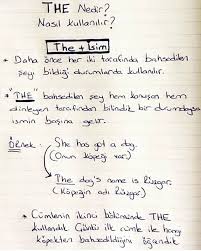 THE Nedir?
Nasıl kullanılır?
The + İsim
• Daha önce her iki tarafında bahsedilen
şeyi bildiği durumlarda kullanılır.
• "THE" bahsedilen şey hem konuşan hem
dinleyen tarafından bilindik bir durumdaysa
ismin başına gelir.
Örnek: She has got a dog.
(Onun köpeği var)
The dog's name is Rüzgar.
(Köpeğin adı Rüzgar)
• Cümlenin ikinci bölümünde THE
kullandık. Çünkü ilk cümle ile hangi
köpekten bahsedildiğini öğrendik